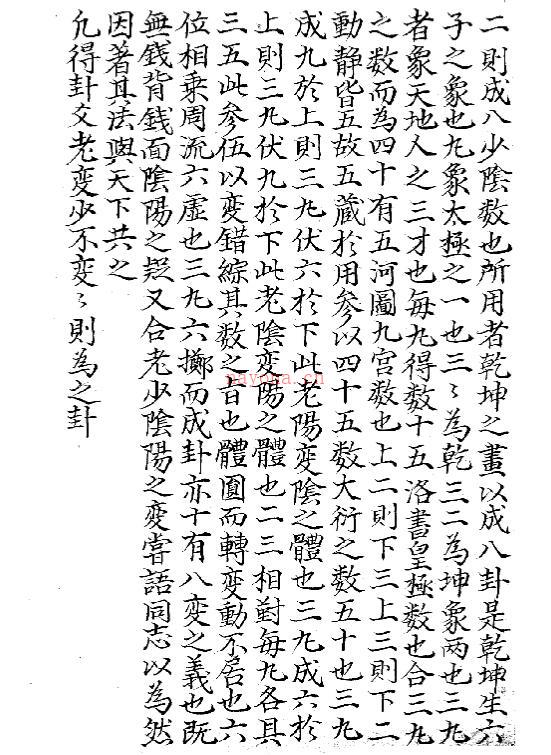 二則成八少陰數也所用者乾坤之畫以成八卦是乾坤生六
子之象也九象太極之一也三〻為乾三二為坤象两也三九
者象天地人之三才也每九得數十五洛書皇極數也合三九
之数而為四十有五河圖九宮数也上二則下三上三則下二
動静皆五故五藏於用参以四十五数大衍之数五十也三九
成九於上則三九伏六於下此老陽变陰之體也三九成六於
上則三九伏九於下此老陰变陽之體也二三相對每九各具
三五此参伍以变錯綜其数之旨也體圓而轉变動不居也六
位相乗周流六虚也三九六擲而成卦亦十有八变之義也既
無錢背錢面陰陽之疑又合老少陰陽之变嘗語同志以為然
因著其法與天下共之
凢得卦爻老变少不变〻則為之卦
nayona.cn